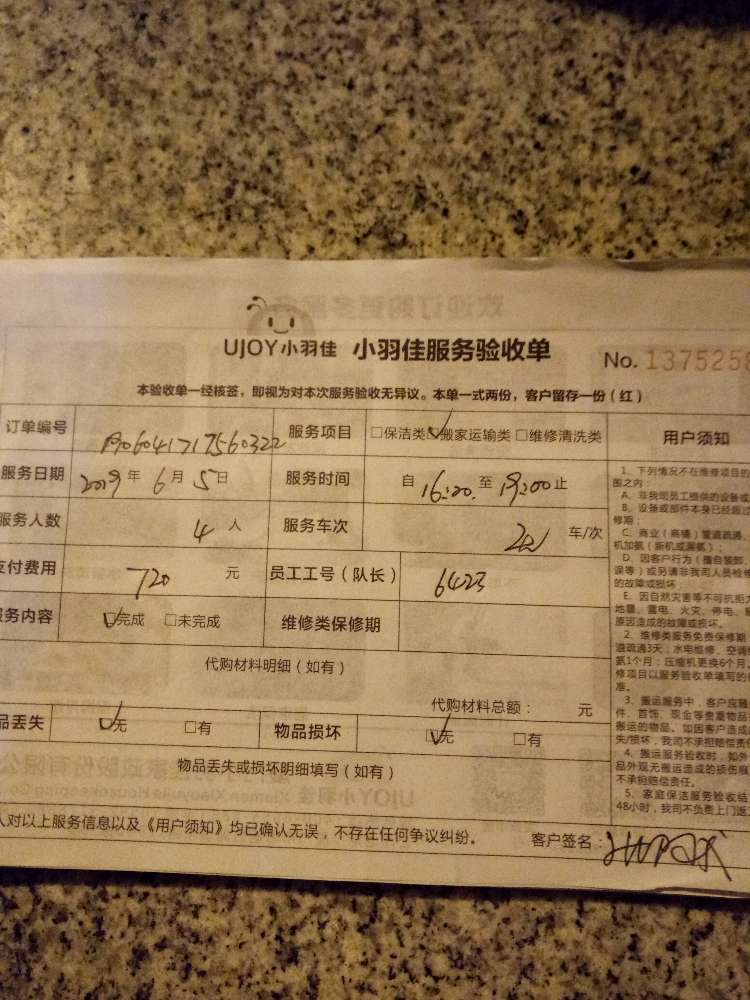 UJOY小羽佳 小羽佳服务验收单 No. 1375258
本验收单一经核签，即视为对本次服务验收无异议。本单一式两份，客户留存一份（红）
订单编号 服务项目 □保洁类☑搬家运输类□维修清洗类 用户须知
服务日期 2019年6月5日 服务时间 自16:20至19:00止
服务人数 4人 服务车次 车/次
支付费用 720元 员工工号（队长） 6423
务内容 ☑完成 □未完成 维修类保修期
代购材料明细（如有）
代购材料总额： 元
品丢失 ☑无 □有 物品损坏 ☑无 □有
物品丢失或损坏明细填写（如有）
人对以上服务信息以及《用户须知》均已确认无误，不存在任何争议纠纷。 客户签名：
1、下列情况不在维修项目的
围之内：
A、非我司员工提供的设备或
B、设备或部件本身已经超过
修期；
C、商业（商铺）管道疏通、
机加氨（新机或漏氨）；
D、因客户行为（擅自装卸、
误等）或另请非我司人员检修
的故障或损坏；
E、因自然灾害等不可抗拒力
地震、雷电、火灾、停电、
原因造成的故障或损坏。
2、维修类服务免费保修期
道疏通3天；水电维修、空调
氨1个月；压缩机更换6个月。
修项目以服务验收单填写的
准。
3、搬运服务中，客户应
件、首饰、现金等贵重物品
搬运的物品。如因客户造成
失/损坏，我司不承担赔偿责任
4、搬运服务验收时，如外
品外观无搬运造成的损伤
不承担赔偿责任。
5、家庭保洁服务验收结
48小时，我司不负责上门返